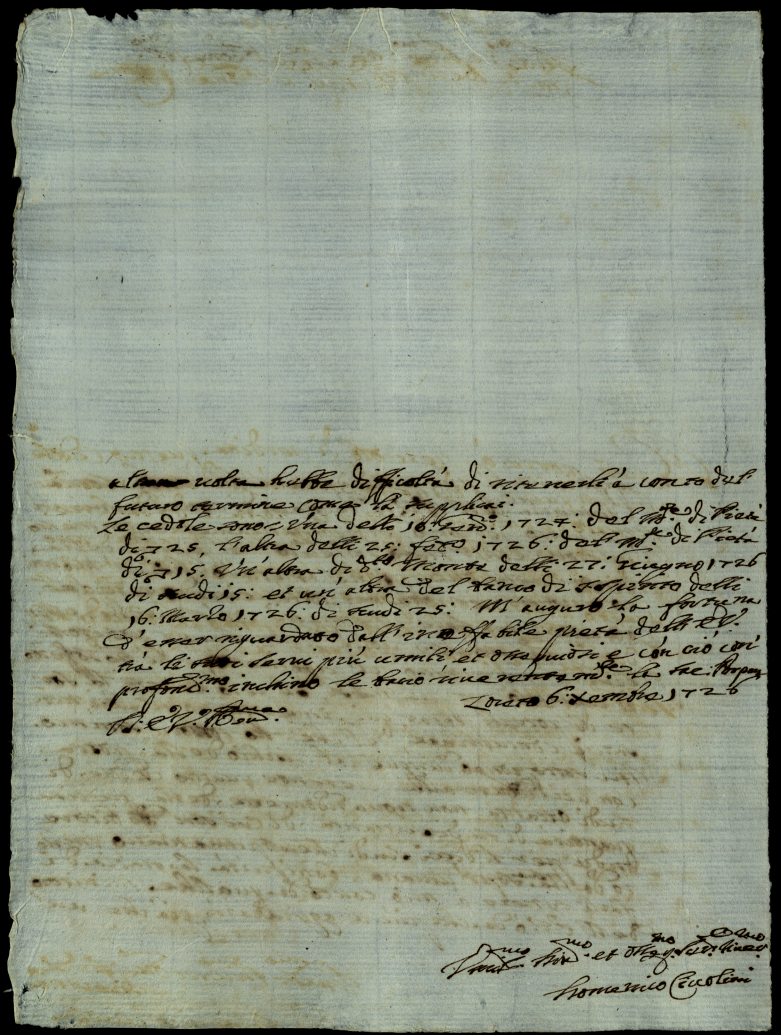 altra uolta hebbe difficoltà di riceuerli à conto del
futuro termine come la supplicai.
Le cedole sono, Vna delli 16: 1724: del M.te di Pietà
di 725, L'altra delli 25: feb.o 1726: del M.te di Pietà
di 715. Vn'altra di d.to Monte delli 27: Giugno 1726
di scudi 15: et un'altra del banco di S. Spirito delli
16: Marzo 1726: di scudi 25: M'auguro la fortuna
d'esser riguardato dall'ineffabile pietà dell'E.V.
trà le suoi serui più umili et ossequiosi e con ciò con
profond.mo inchino le bacio riuerentem.te la sac: Porpora
Loreto 6: Xembre 1726
D: E.V. Reu.ma
Vmil.mo Diu.mo et Osseq.mo Ser.
Domenico Ceccolini